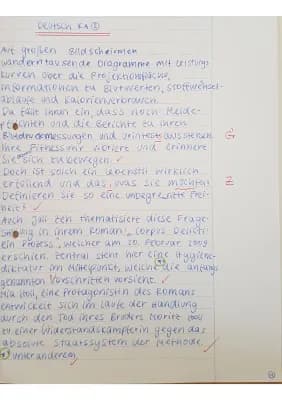 DEUTSCH KA ①
Auf großen Bildschirmen
wandern tausende Diagramme mit Leistungs
kurven über die Projektionsfläche,
Informationen zu Blutwerten, Stoffwechsel-
abläufe und Kalorienverbrauch.
Da fällt Ihnen ein, dass noch Melde-
pflichten und die Berichte zu Ihren
Blutdruckmessungen und Urintests ausstehen. G
Ihre Fitnessuhr vibriert und erinnert
Sie sich zu bewegen. ✓
Doch ist solch ein Lebensstil wirklich
erfüllend und das, was sie möchten? Z
Definieren Sie so eine unbegrenzte Frei-
heit?
Auch Juli Zeh thematisiert diese Frage-
stellung in ihrem Roman "Corpus Delicti
ein Prozess", welcher am 20. Februar 2009
erschien. Zentral steht hier eine Hygiene-
diktatur im Mittelpunkt, welche die anfangs
genannten Vorschriften vorsieht. ✓
Mia Holl, eine Protagonistin des Romans
entwickelt sich im Laufe der Handlung
durch den Tod ihres Bruders Moritz Holl
zu einer Widerstandskämpferin gegen das
absolute Staatssystem der Methode. ✓
unter anderem